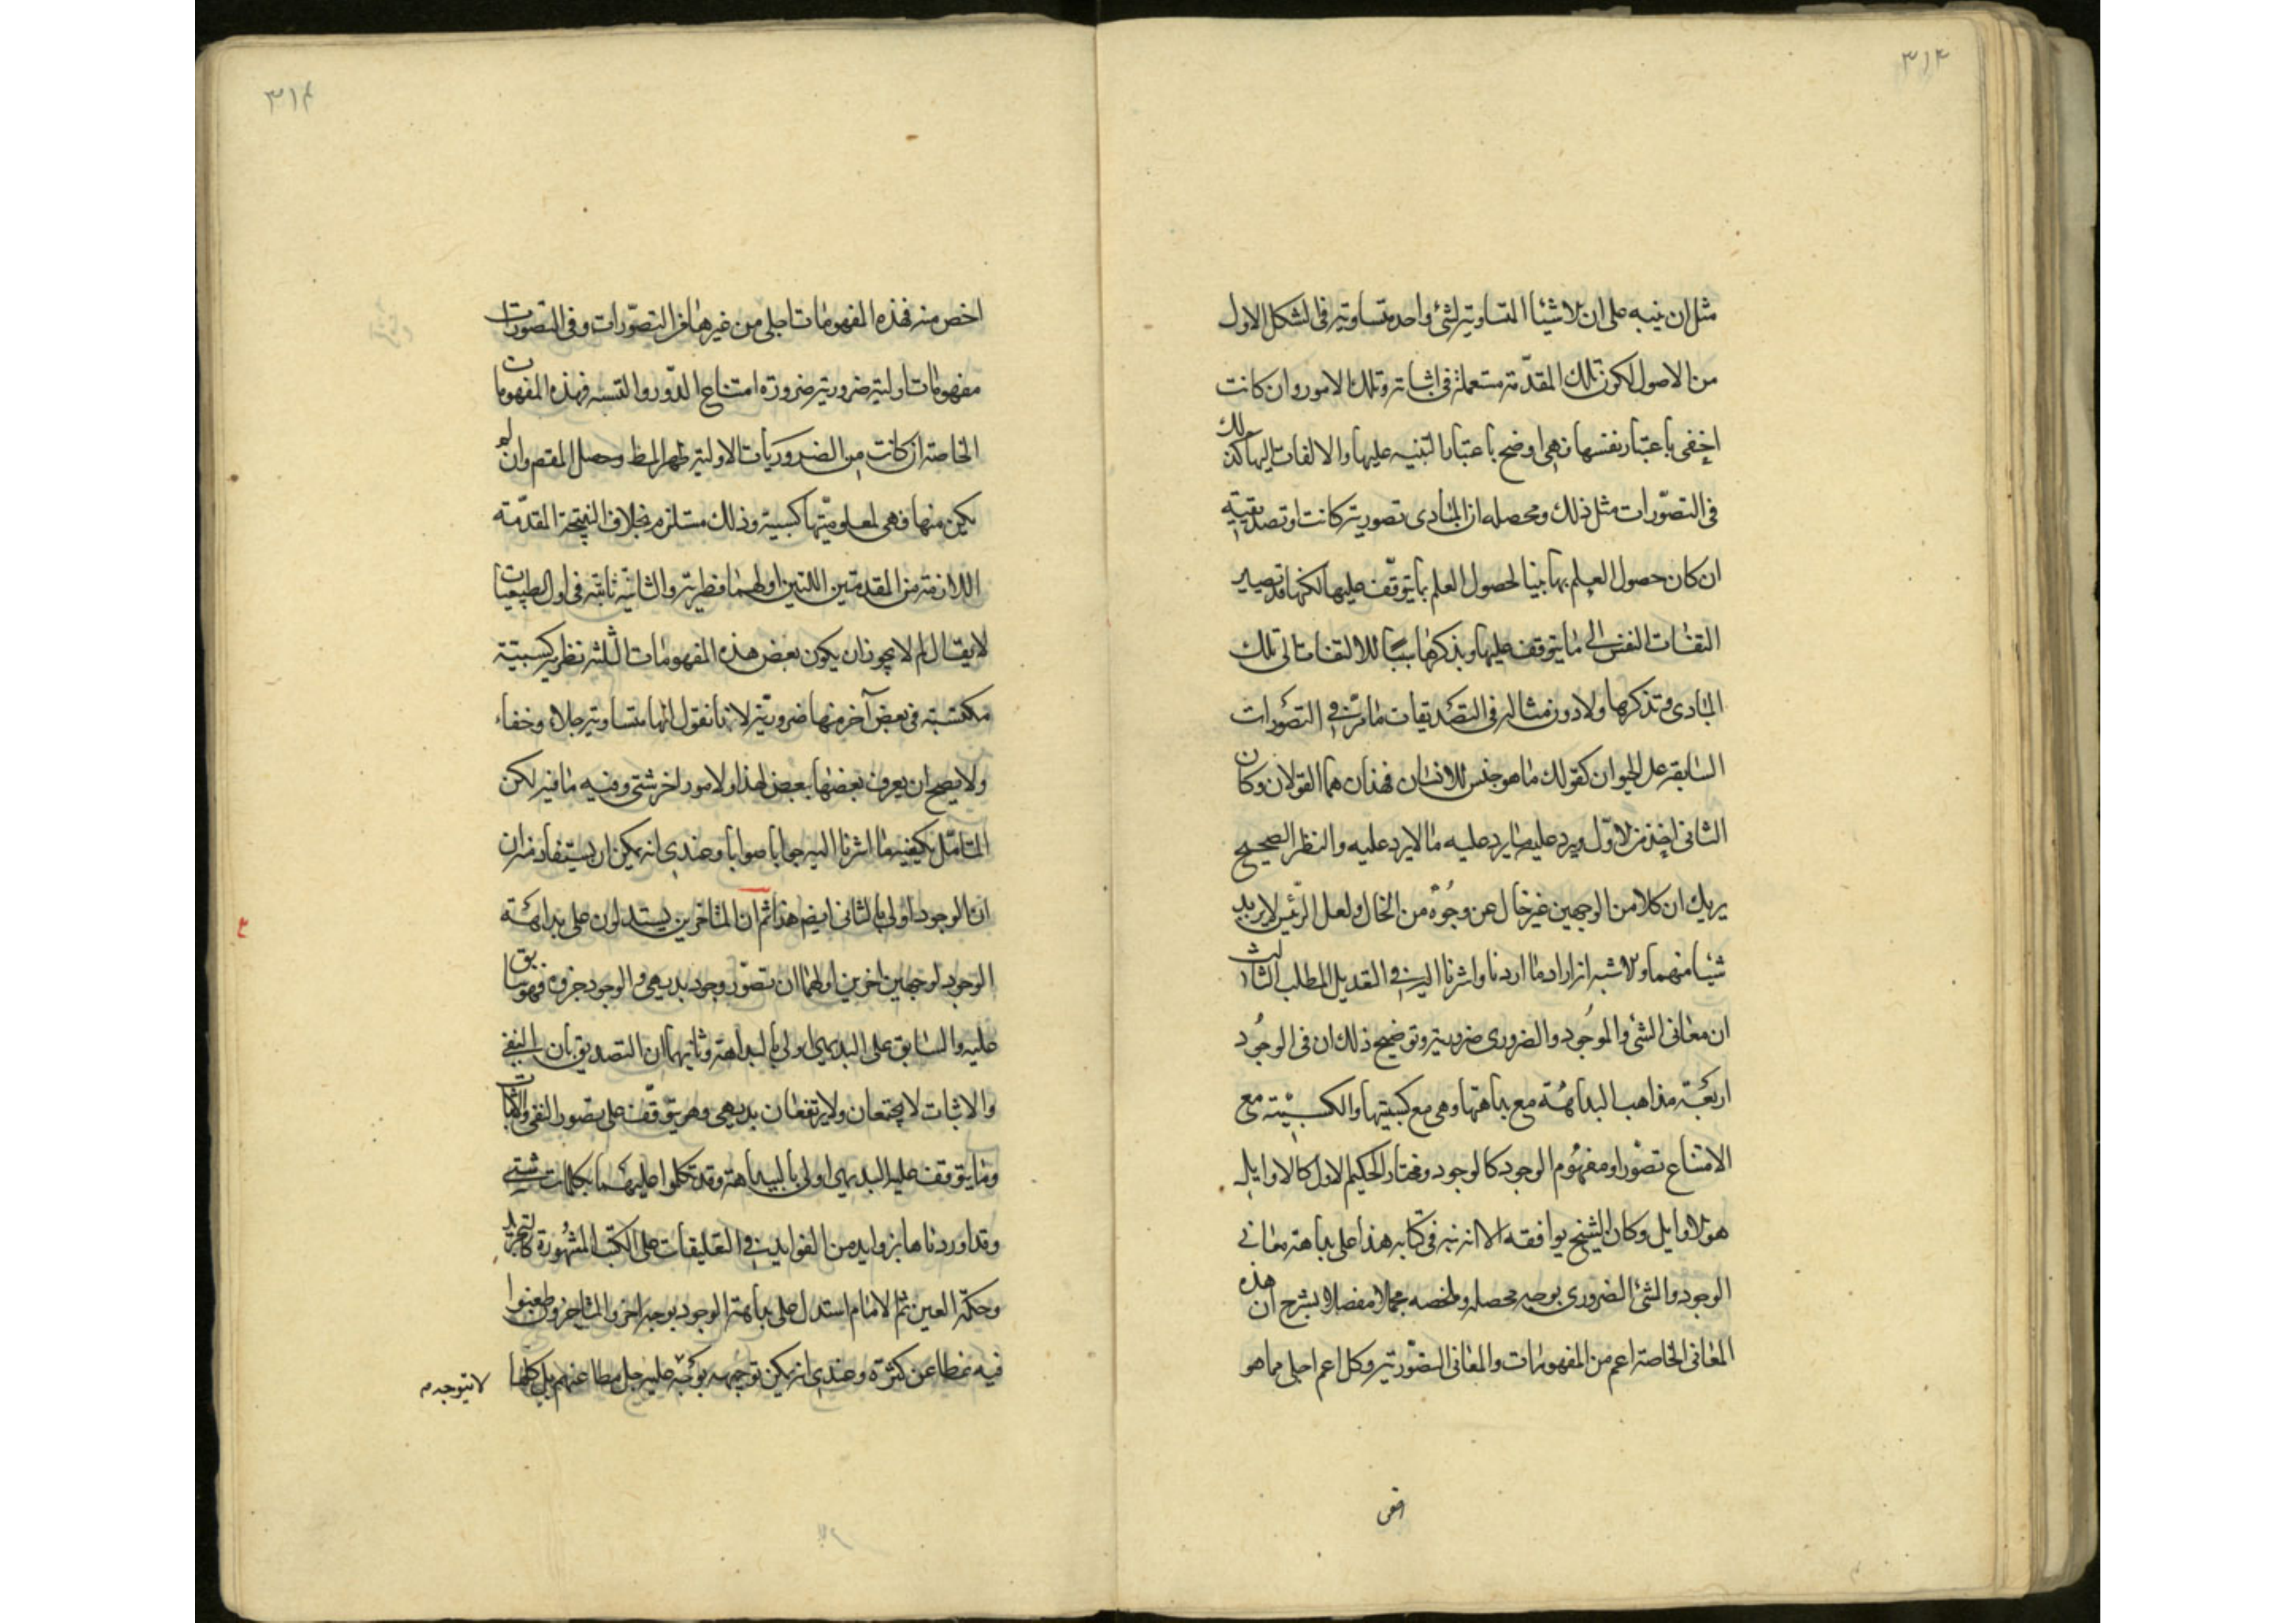 ٣١٣
مثل ان ينبه على ان الاشياء المتساوية لشئ واحد متساوية فى الشكل الاول
من الاصول لكون تلك المقدّمة مستعملة فى اثباته وتلك الامور وان كانت
اخفى باعتبار نفسها فهى اوضح باعتبار التنبيه عليها والالتفات اليها كذلك
فى التصوّرات مثل ذلك ومحصله ان المبادى تصورية كانت او تصديقية
ان كان حصول العلم بها مبنيا لحصول العلم بما يتوقّف عليها لكنها قد تصير
التفات النفس الى ما يتوقف عليها وبذكرها سببا للالتفات الى تلك
المبادى وتذكرها ولا دون مثاله فى التصديقات ما مرّ فى التصوّرات
السابقة على الحيوان كقولك ما هو جنس للانسان فهذان هما القولان وكان
الثانى اخذ من الاوّل ويرد عليه ما يرد عليه ما لا يرد عليه والنظر الصحيح
يريك ان كلا من الوجهين غير خال عن وجوه من الخال ولعل الرئيس لا يريد
شيئا منهما والاشبه انه اراد ما اردنا واشرنا اليه فى التقديل المطلب الثالث
ان معانى الشئ والموجود والضرورى ضرورية وتوضيح ذلك ان فى الوجود
اربعة مذاهب البداهة مع بداهتها وهى مع كسبيتها والكسبيّة مع
الامتناع تصوّرا ومفهوم الوجود كالوجود ومختار الحكيم الاول كالاوايل
هو الاوايل وكان الشيخ يوافقه الا انه نبه فى كتابه هذا على بداهة معانى
الوجود والشئ الضرورى بوجيه محصله وملخصه مجملا مفصلا بشرح ان هذه
المعانى الخاصة اعم من المفهومات والمعانى المصوّرية وكل اعم اجلى مما هو
اخص
٣١٤
اخص منه فهذه المفهومات اجلى من غيرها من التصوّرات وفى التصورات
مفهومات اولية ضرورية ضرورة امتناع الدّور والتسـه فهذه المفهومات
الخاصة ان كانت من الضروريات الاولية ظهر المط وحصل المقصم وان لم
يكن منها فهى لمعلوميّتها كسبية وذلك مستلزم بخلاف النتيجة المقدّمة
اللازمة من المقدمتين اللتين اولهما فطرية والثانية ثابتة فى اول الطبيعيات
لا يقال لم لا يجوز ان يكون بعض هذه المفهومات الثلثة نظرية كسبيّة
مكتسبة فى بعض آخر منها ضرورية لانا نقول انها متساوية جلاء وخفاء
ولا يصح ان يعرف بعضها ببعض لهذا ولامور اخر شتى وفيه ما فيه لكن
المتامّل يكفيه ما اشرنا اليه جوابا صوابا وعندى انه يمكن ان يستفاد منه ان
ان الوجود اولى بالثانى ايضم هذا ثم ان المتاخرين يستدلون على بداهة
الوجود لوجهين اخرين اولهما ان تصوّر وجود بديهى والوجود جزؤه فهو سابق
عليه والسابق على البديهى اولى بالبداهة وثانيهما ان التصديق بان النفى
والاثبات لا يجتمعان ولا يرتفعان بديهى وهو يتوقّف على تصور النفى والاثبات
وما يتوقف عليه البديهى اولى بالبداهة وقد تكلموا عليهما بكلمات شتى
وقد اوردناها بزوايد من الفوايد فى التعليقات على الكتب المشهورة كالتجريد
وحكمة العين ثم الامام استدل على بداهة الوجود بوجه اخر والمتاخرون طعنوا
فيه مطاعن كثيرة وعندى انه يمكن توجيهه بوجه عليه جل مطاعنهم بل كلها
لا يتوجه م